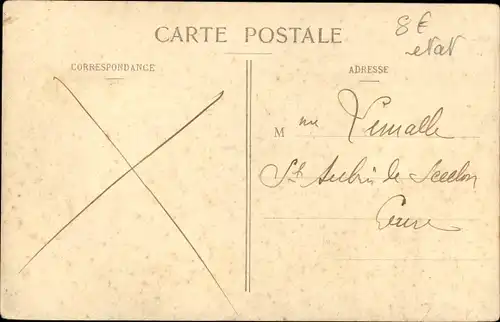 CARTE POSTALE
8€
etat
CORRESPONDANCE
ADRESSE
Mme Vimalle
St Aubin de Scellon
Eure